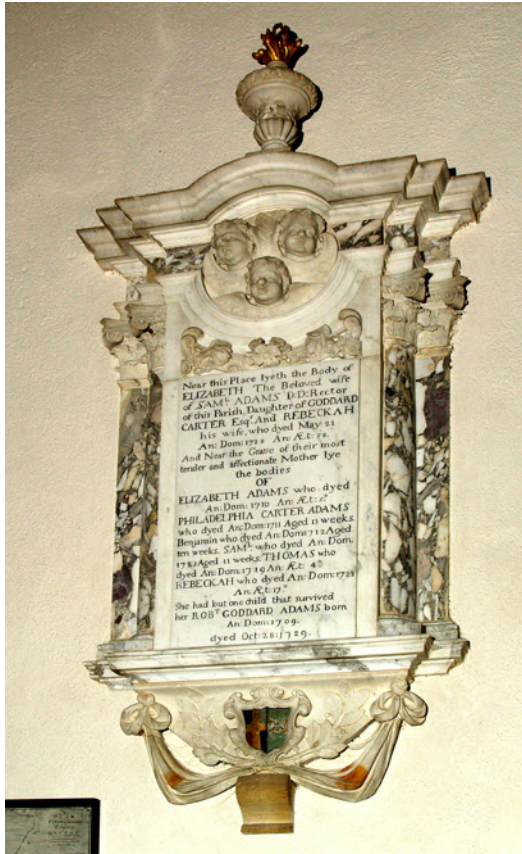 Near this Place lyeth the Body of
ELIZABETH The Beloved wife
of SAMᴸ ADAMS D:D: Rector
of this Parish, Daughter of GODDARD
CARTER Esqʳ And REBECKAH
his wife, who dyed May 23
An: Dom: 1728 An: Æt:
And Near the Grave of their most
tender and affectionate Mother lye
the bodies
OF
ELIZABETH ADAMS who dyed
An: Dom: 1710 An: Æt:
PHILADELPHIA CARTER ADAMS
who dyed An: Dom: 1711 Aged 13 weeks.
Benjamin who dyed An: Dom: 1712 Aged
ten weeks. SAMᴸ: who dyed An: Dom.
Aged 11 weeks: THOMAS who
dyed An: Dom: 1719 An: Æt: 4ᵗʰ
REBECKAH who dyed An: Dom: 1728
An: Æt: 17.ᵒ
She had but one child that survived
her ROBᵀ GODDARD ADAMS born
An: Dom: 1709.
dyed Oct: 28: 1729.